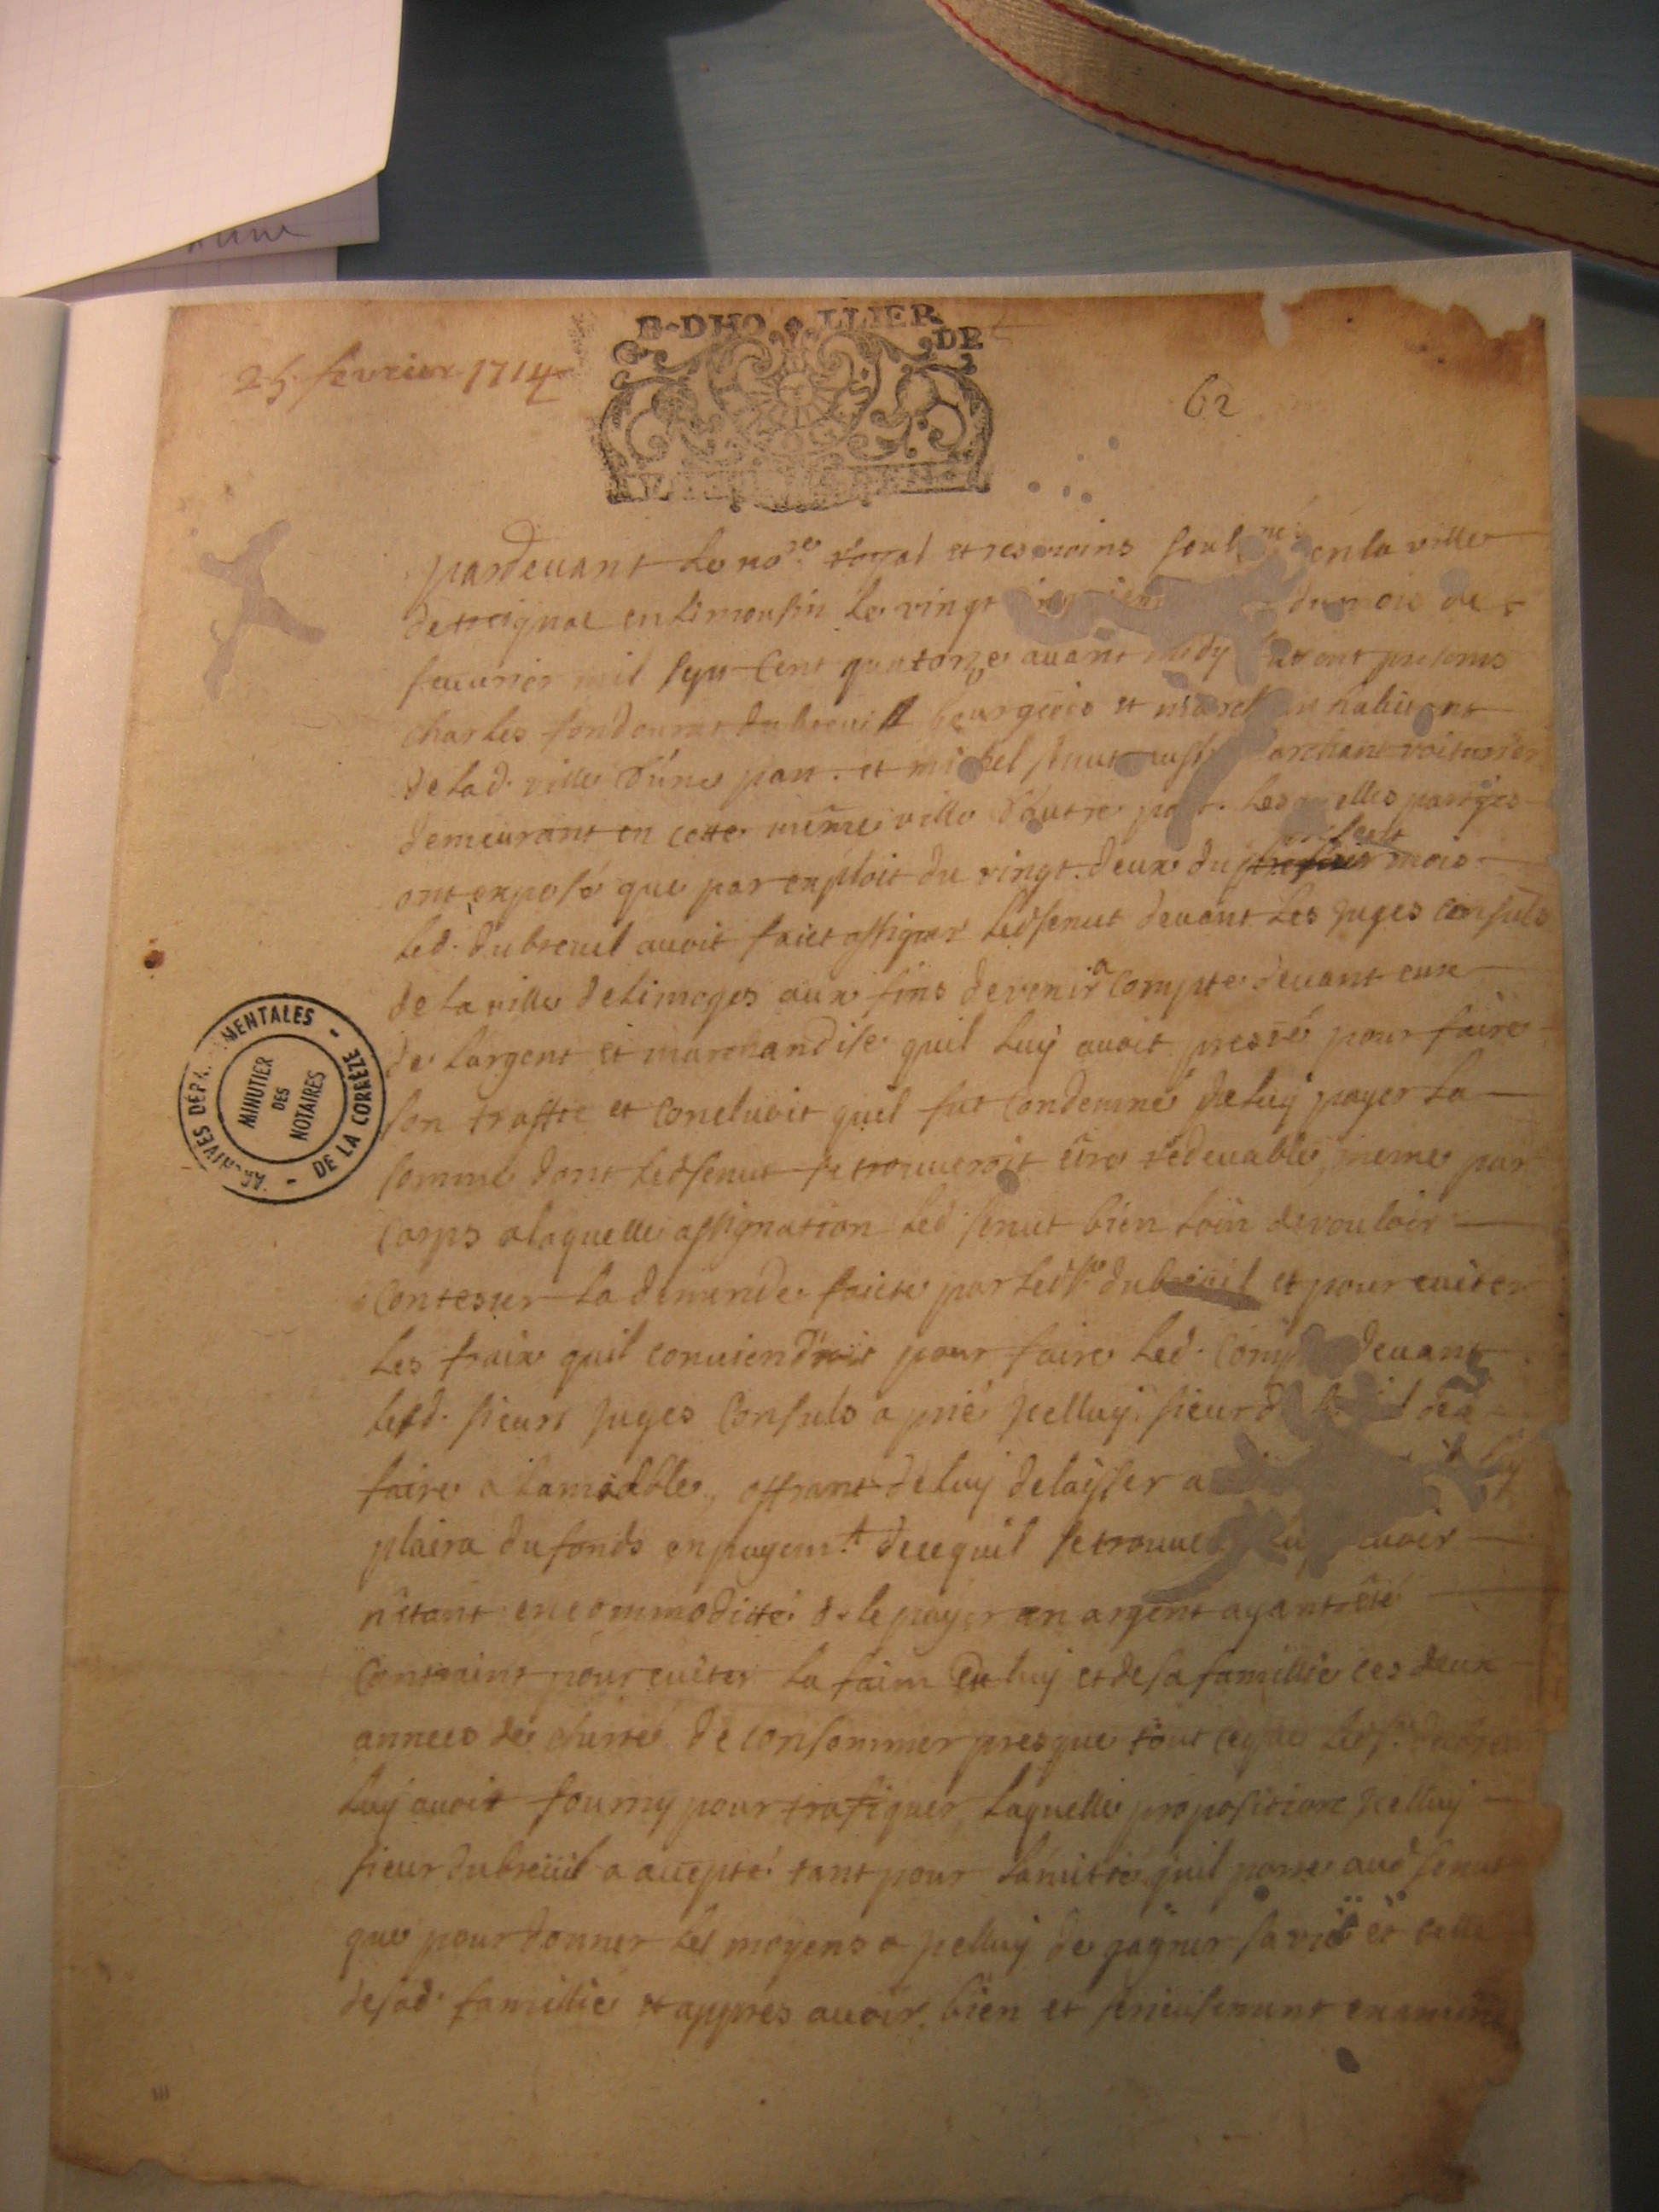 25 fevrier 1714
62
B-DHO LLIER
DE
pardevant le no.re royal et tesmoins soub né en la ville
de treignac en Limousin le vingt du mois de
feuurier mil sept cent quatorze avant midy furent presens
charles fondeurat dubreuil bourgeois et march habitant
de lad. ville d'úne part. et michel senut marchant voiturier
demeurant en cette même ville d'autre part. lesquelles parties
ont exposé que par exploit du vingt deux du present mois
led. dubreuil avoit faict assigner led senut devant les juges consuls
de la ville de Limoges aux fins de venir a compte devant eux
de largent et marchandise quil luy avoit presté pour faire
son traffic et concluoit quil fut condemné de luy payer la
somme dont led senut se trouveroit être redevable, meme par
corps a laquelle assignation led senut bien loin de vouloir
contester la demende faicte par led sr dubreuil et pour eviter
les fraix quil conviendroit pour faire led. compte devant
lesd. sieurs juges consuls a prié jcelluy sieur d
faire a lamiable, offrant de luy delaisser a
plaira du fonds en payemt. de ce quil se trouvera luy devoir
n'étant en commoditté de le payer en argent ayant été
contraint pour eviter la faim de luy et de sa famillie ces deux
annees de cherté de consommer presque tout ce que led sr. dubreu
luy avoit fourny pour trafiquer, laquelle proposition jcelluy
sieur dubreüil a accepté tant pour lamitié quil porte aud senut
que pour donner les moyens a jcelluy de gagner sa vie et celle
de sad. famillie et appres avoir bien et serieusement examiné
ARCHIVES DÉPARTEMENTALES - DE LA CORRÈZE -
MINUTIER
DES
NOTAIRES